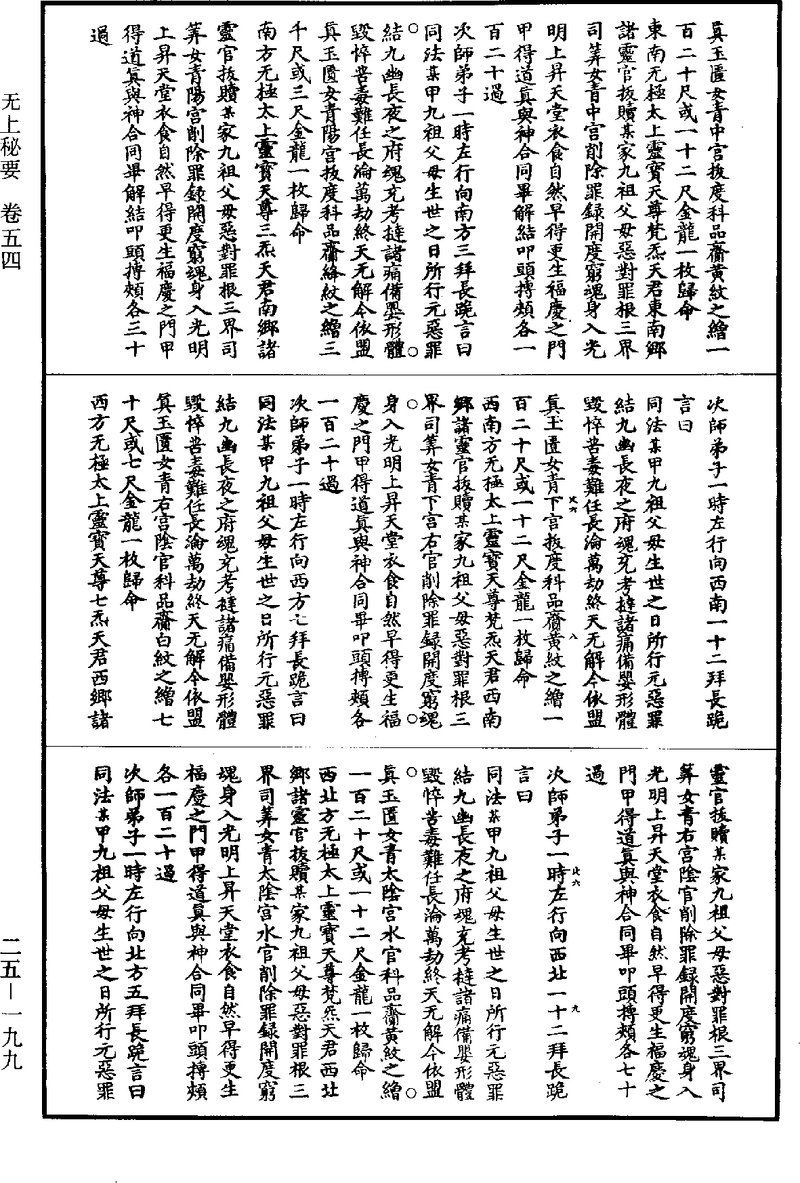 真玉匱女青中宮拔度科品齎黃紋之繒一
百二十尺或一十二尺金龍一枚歸命
東南无極太上靈寶天尊梵炁天君東南鄉
諸靈官拔贖某家九祖父母惡對罪根三界
司筭女青中宮削除罪録開度窮魂身入光
明上昇天堂衣食自然早得更生福慶之門
甲得道真與神合同畢解結叩頭搏頰各一
百二十過
次師弟子一時左行向南方三拜長跪言曰
同法某甲九祖父母生世之日所行元惡罪
結九幽長夜之府魂充考撻諸痛備嬰形體
毀悴苦毒難任長淪萬劫終天无解今依盟
真玉匱女青陽宮拔度科品齎絳紋之繒三
千尺或三尺金龍一枚歸命
南方无極太上靈寶天尊三炁天君南鄉諸
靈官拔贖某家九祖父母惡對罪根三界司
筭女青陽宮削除罪録開度窮魂身入光明
上昇天堂衣食自然早得更生福慶之門甲
得道真與神合同畢解結叩頭搏頰各三十
過
次師弟子一時左行向西南一十二拜長跪
言曰
同法某甲九祖父母生世之日所行元惡罪
結九幽長夜之府魂充考撻諸痛備嬰形體
毀悴苦毒難任長淪萬劫終天无解今依盟
真玉匱女青下官拔度科品齎黃紋之繒一
百二十尺或一十二尺金龍一枚歸命
西南方无極太上靈寶天尊梵炁天君西南
鄉諸靈官拔贖某家九祖父母惡對罪根三
界司筭女青下宮右官削除罪録開度窮魂
身入光明上昇天堂衣食自然早得更生福
慶之門甲得道真與神合同畢叩頭搏頰各
一百二十過
次師弟子一時左行向西方七拜長跪言曰
同法某甲九祖父母生世之日所行元惡罪
結九幽長夜之府魂充考撻諸痛備嬰形體
毀悴苦毒難任長淪萬劫終天无解今依盟
真玉匱女青右宮陰官科品齎白紋之繒七
十尺或七尺金龍一枚歸命
西方无極太上靈寶天尊七炁天君西鄉諸
靈官拔贖某家九祖父母惡對罪根三界司
筭女青右宮陰官削除罪録開度窮魂身入
光明上昇天堂衣食自然早得更生福慶之
門甲得道真與神合同畢叩頭搏頰各七十
過
次師弟子一時左行向西北一十二拜長跪
言曰
同法某甲九祖父母生世之日所行元惡罪
結九幽長夜之府魂充考撻諸痛備嬰形體
毀悴苦毒難任長淪萬劫終天无解今依盟
真玉匱女青太陰宮水官科品齎黃紋之繒
一百二十尺或一十二尺金龍一枚歸命
西北方无極太上靈寶天尊梵炁天君西北
鄉諸靈官拔贖某家九祖父母惡對罪根三
界司筭女青太陰宮水官削除罪録開度窮
魂身入光明上昇天堂衣食自然早得更生
福慶之門甲得道真與神合同畢叩頭搏頰
各一百二十過
次師弟子一時左行向北方五拜長跪言曰
同法某甲九祖父母生世之日所行元惡罪
无上秘要 卷五四
二五—一九九